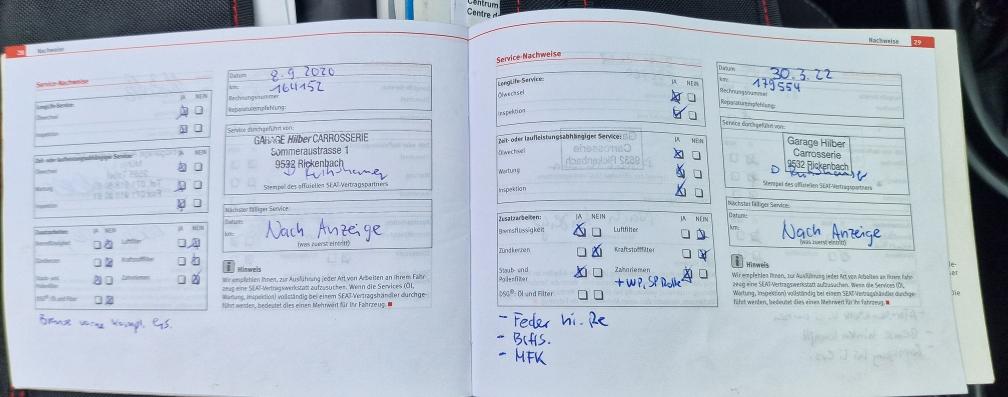 Centrum
Centre d
28 Nachweise
Service-Nachweise
LongLife-Service:
JA NEIN
Ölwechsel
Inspektion
Zeit- oder laufleistungsabhängiger Service:
JA NEIN
Ölwechsel
Wartung
Inspektion
Zusatzarbeiten:
JA NEIN
JA NEIN
Bremsflüssigkeit
Luftfilter
Zündkerzen
Kraftstofffilter
Staub- und
Pollenfilter
Zahnriemen
DSG®-Öl und Filter
Bremse vorne kompl. ers.
Datum 8.9.2020
km: 164152
Rechnungsnummer
Reparaturempfehlung:
Service durchgeführt von:
GARAGE Hilber CARROSSERIE
Sommeraustrasse 1
9532 Rickenbach
Stempel des offiziellen SEAT-Vertragspartners
Nächster fälliger Service:
Datum:
km:
Nach Anzeige
(was zuerst eintritt)
Hinweis
Wir empfehlen Ihnen, zur Ausführung jeder Art von Arbeiten an Ihrem Fahr-
zeug eine SEAT-Vertragswerkstatt aufzusuchen. Wenn die Services (Öl,
Wartung, Inspektion) vollständig bei einem SEAT-Vertragshändler durchge-
führt werden, bedeutet dies einen Mehrwert für Ihr Fahrzeug.
Nachweise 29
Service-Nachweise
LongLife-Service:
JA NEIN
Ölwechsel
Inspektion
Zeit- oder laufleistungsabhängiger Service:
JA NEIN
Ölwechsel
Wartung
Inspektion
Zusatzarbeiten:
JA NEIN
JA NEIN
Bremsflüssigkeit
Luftfilter
Zündkerzen
Kraftstofffilter
Staub- und
Pollenfilter
Zahnriemen
+ WP, SP Rolle
DSG®-Öl und Filter
- Feder hi. Re
- MFK
Datum 30.3.22
km: 179554
Rechnungsnummer
Reparaturempfehlung:
Service durchgeführt von:
Garage Hilber
Carrosserie
9532 Rickenbach
Stempel des offiziellen SEAT-Vertragspartners
Nächster fälliger Service:
Datum:
km:
Nach Anzeige
(was zuerst eintritt)
Hinweis
Wir empfehlen Ihnen, zur Ausführung jeder Art von Arbeiten an Ihrem Fahr-
zeug eine SEAT-Vertragswerkstatt aufzusuchen. Wenn die Services (Öl,
Wartung, Inspektion) vollständig bei einem SEAT-Vertragshändler durchge-
führt werden, bedeutet dies einen Mehrwert für Ihr Fahrzeug.